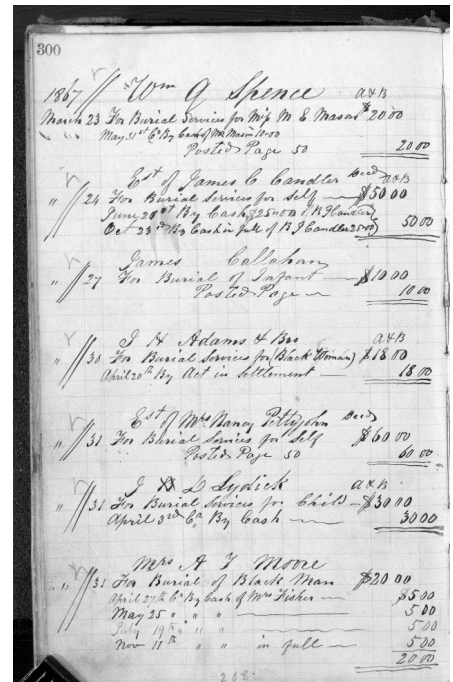 300
1867 Wm G Spence A&B
March 23 For Burial Services for Miss M E Mason $20.00
May 31st Cr By Cash of Mr Mason 10.00
Posted Page 50 20 00
Est of James C Candler Decd A&B
" 24 For Burial Services for Self $50 00
June 20th By Cash $25.00 of B J Candler
Oct 23rd By Cash in full of B J Candler 25.00 50 00
James Callahan
" 27 For Burial of Infant $10 00
Posted Page 10 00
J H Adams & Bro A&B
" 30 For Burial Services for (Black Woman) $18 00
April 20th By Act in Settlement 18 00
Est of Mrs Nancy Pettyjohn Decd
" 31 For Burial Services for Self $60 00
Posted Page 50 60 00
J D Lydick A&B
" 31 For Burial Services for Child $30 00
April 3rd Cr By Cash 30 00
Mrs A T Moore
" 31 For Burial of Black Man $20 00
April 27th Cr By Cash of Mrs Fisher $5 00
May 25 " " " 5 00
July 19th " " " 5 00
Nov 11th " " in full 5 00
20 00
208